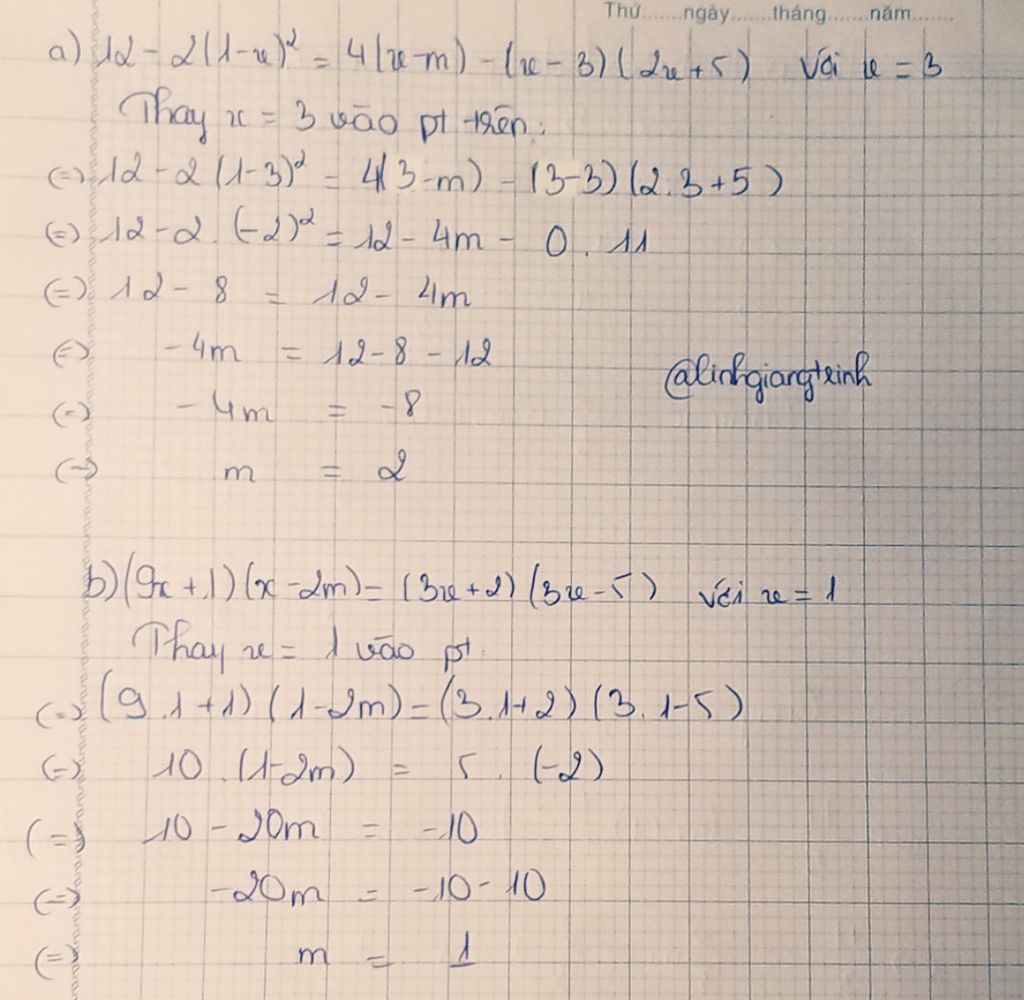 Thứ.......ngày.......tháng.......năm.......
a) 12 - 2(1-x)² = 4(x-m) - (x-3)(2x+5) với x = 3
Thay x = 3 vào pt trên:
(=) 12 - 2(1-3)² = 4(3-m) - (3-3)(2.3+5)
(=) 12 - 2.(-2)² = 12 - 4m - 0.11
(=) 12 - 8 = 12 - 4m
(=) -4m = 12 - 8 - 12
@linhgiangtrinh
(=) -4m = -8
(=) m = 2
b) (9x+1)(x-2m) = (3x+2)(3x-5) với x = 1
Thay x = 1 vào pt
(=) (9.1+1)(1-2m) = (3.1+2)(3.1-5)
(=) 10.(1-2m) = 5.(-2)
(=) 10 - 20m = -10
(=) -20m = -10 - 10
(=) m = 1